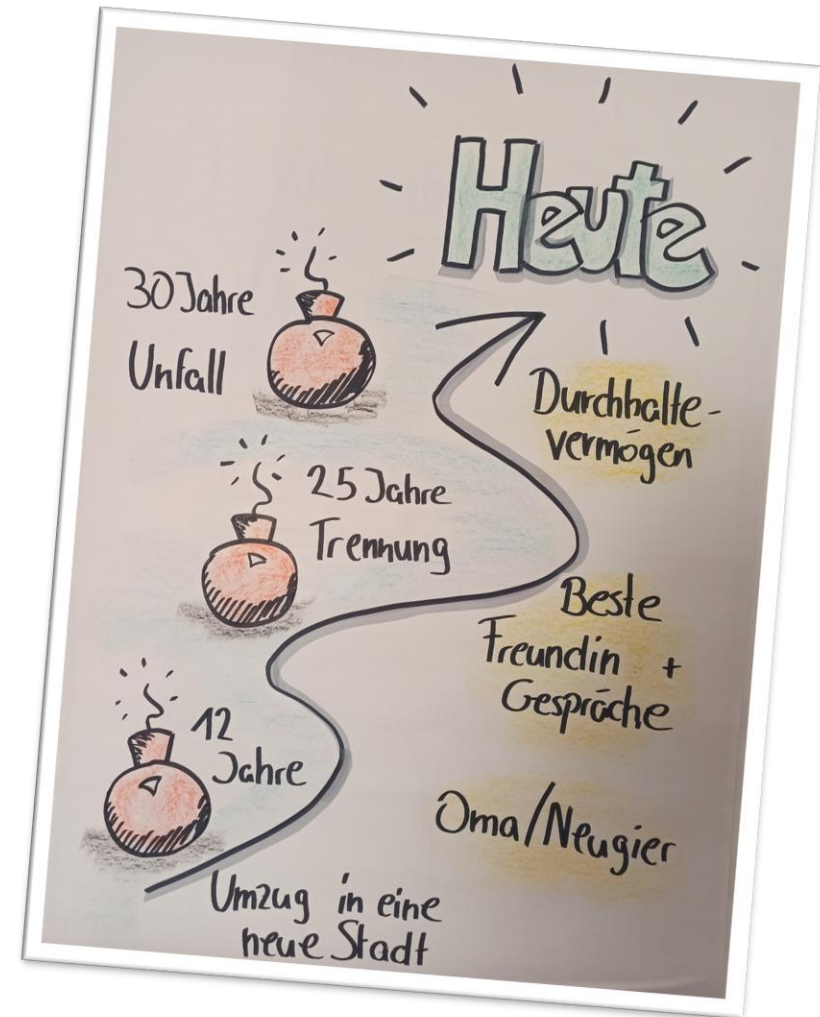 Heute
30 Jahre
Unfall
Durchhalte-
vermögen
25 Jahre
Trennung
Beste
Freundin +
Gespräche
12
Jahre
Oma/Neugier
Umzug in eine
neue Stadt